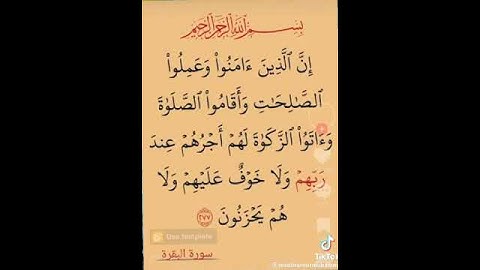 بِسْمِ ٱللَّهِ ٱلرَّحْمَٰنِ ٱلرَّحِيمِ
إِنَّ ٱلَّذِينَ ءَامَنُواْ وَعَمِلُواْ
ٱلصَّٰلِحَٰتِ وَأَقَامُواْ ٱلصَّلَوٰةَ
وَءَاتَوُاْ ٱلزَّكَوٰةَ لَهُمۡ أَجۡرُهُمۡ عِندَ
رَبِّهِمۡ وَلَا خَوۡفٌ عَلَيۡهِمۡ وَلَا
هُمۡ يَحۡزَنُونَ ٢٧٧
Use template
سورة البقرة
TikTok